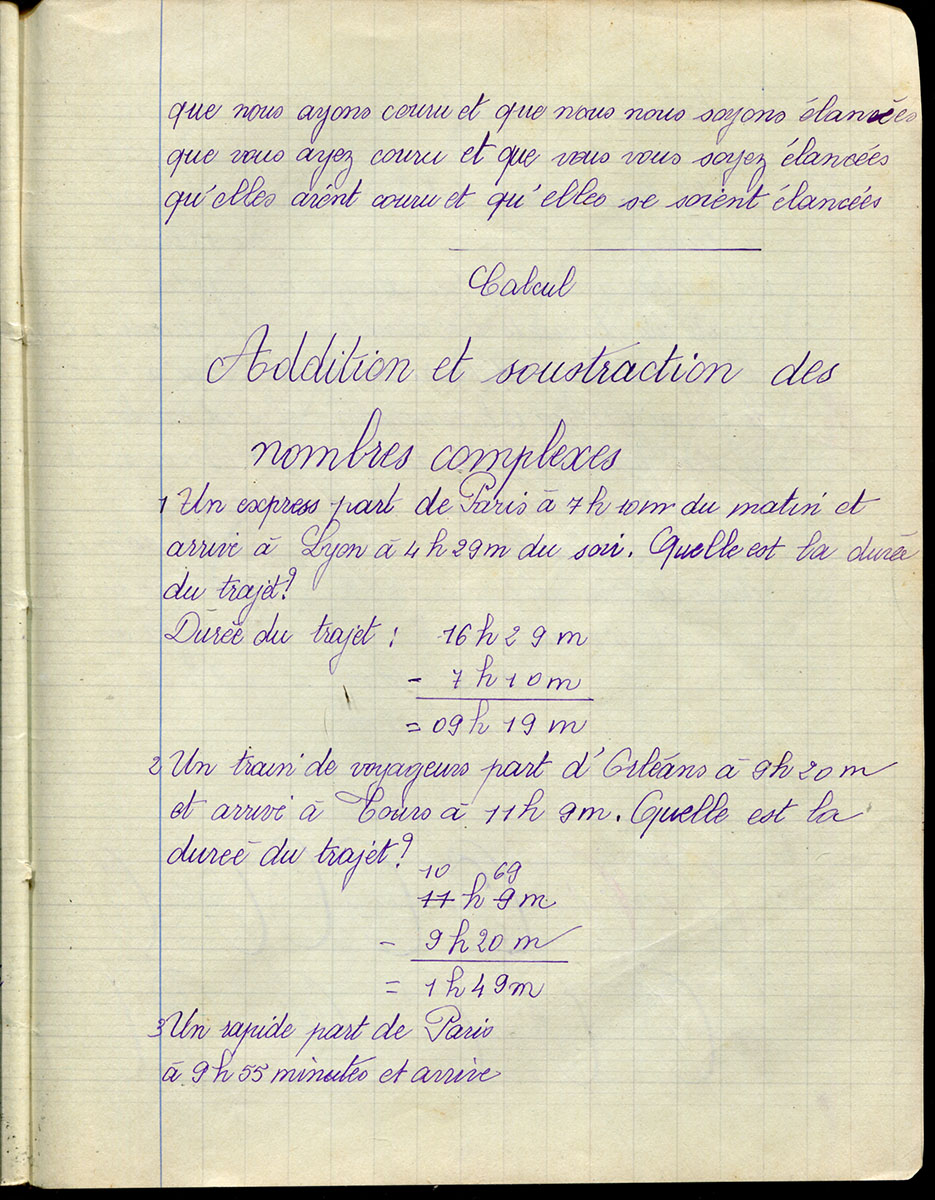 que nous ayons couru et que nous nous soyons élancées
que vous ayez couru et que vous vous soyez élancées
qu'elles aient couru et qu'elles se soient élancées
Calcul
Addition et soustraction des
nombres complexes
1 Un express part de Paris à 7h 10m du matin et
arrive à Lyon à 4h 29m du soir. Quelle est la durée
du trajet?
Durée du trajet : 16h 29m
- 7h 10m
= 09h 19m
2 Un train de voyageurs part d'Orléans à 9h 20m
et arrive à Tours à 11h 9m. Quelle est la
durée du trajet?
10 69
11h 9m
- 9h 20m
= 1h 49m
3 Un rapide part de Paris
à 9h 55 minutes et arrive